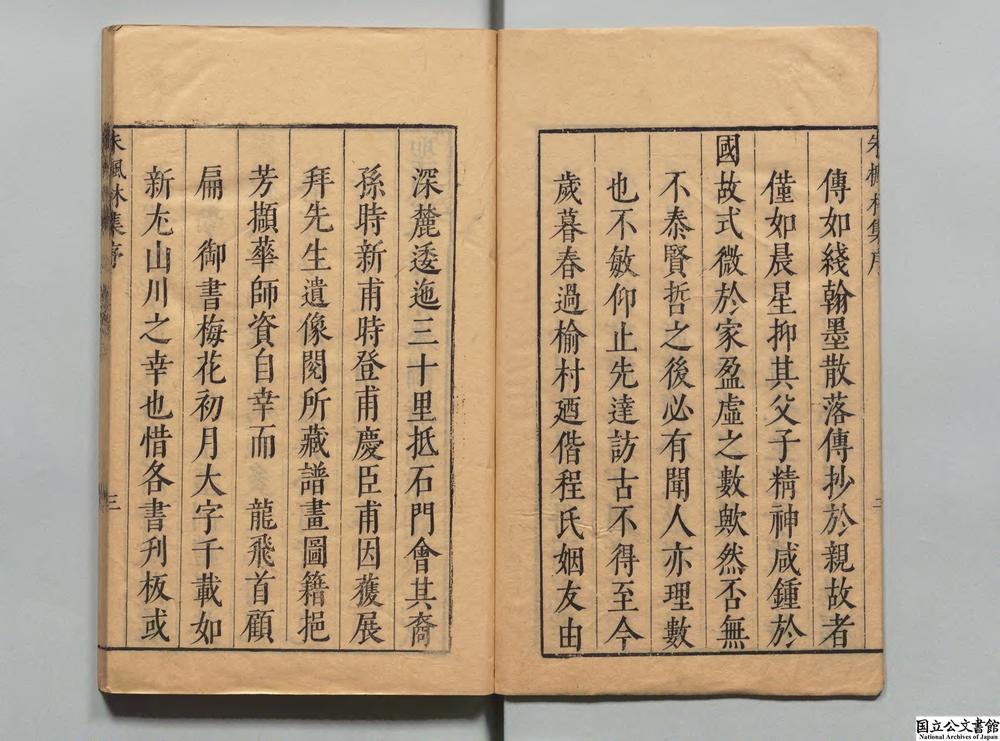 朱楓林集序
傳如綫翰墨散落傳抄於親故者
僅如晨星抑其父子精神咸鍾於
國故式微於家盈虛之數歟然否無
不泰賢哲之後必有聞人亦理數
也不敏仰止先達訪古不得至今
歲暮春過榆村廼偕程氏姻友由
二
深麓逶迤三十里抵石門會其裔
孫時新甫時登甫慶臣甫因獲展
拜先生遺像閱所藏譜畫圖籍挹
芳擷華師資自幸而 龍飛首顧
扁 御書梅花初月大字千載如
新尤山川之幸也惜各書刊板或
朱楓林集序
三
国立公文書館
National Archives of Japan